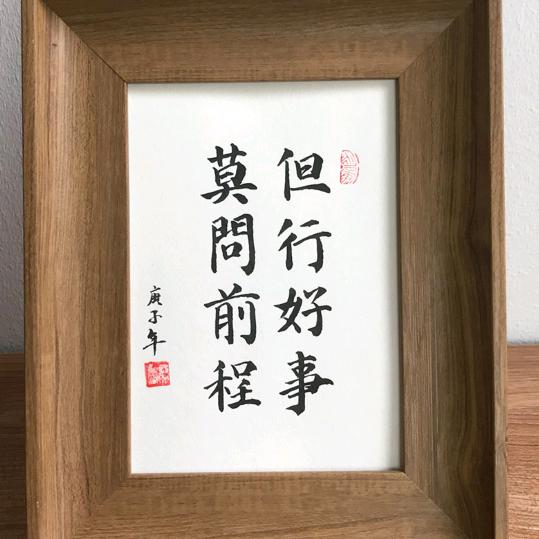 但行好事
莫問前程
庚子年